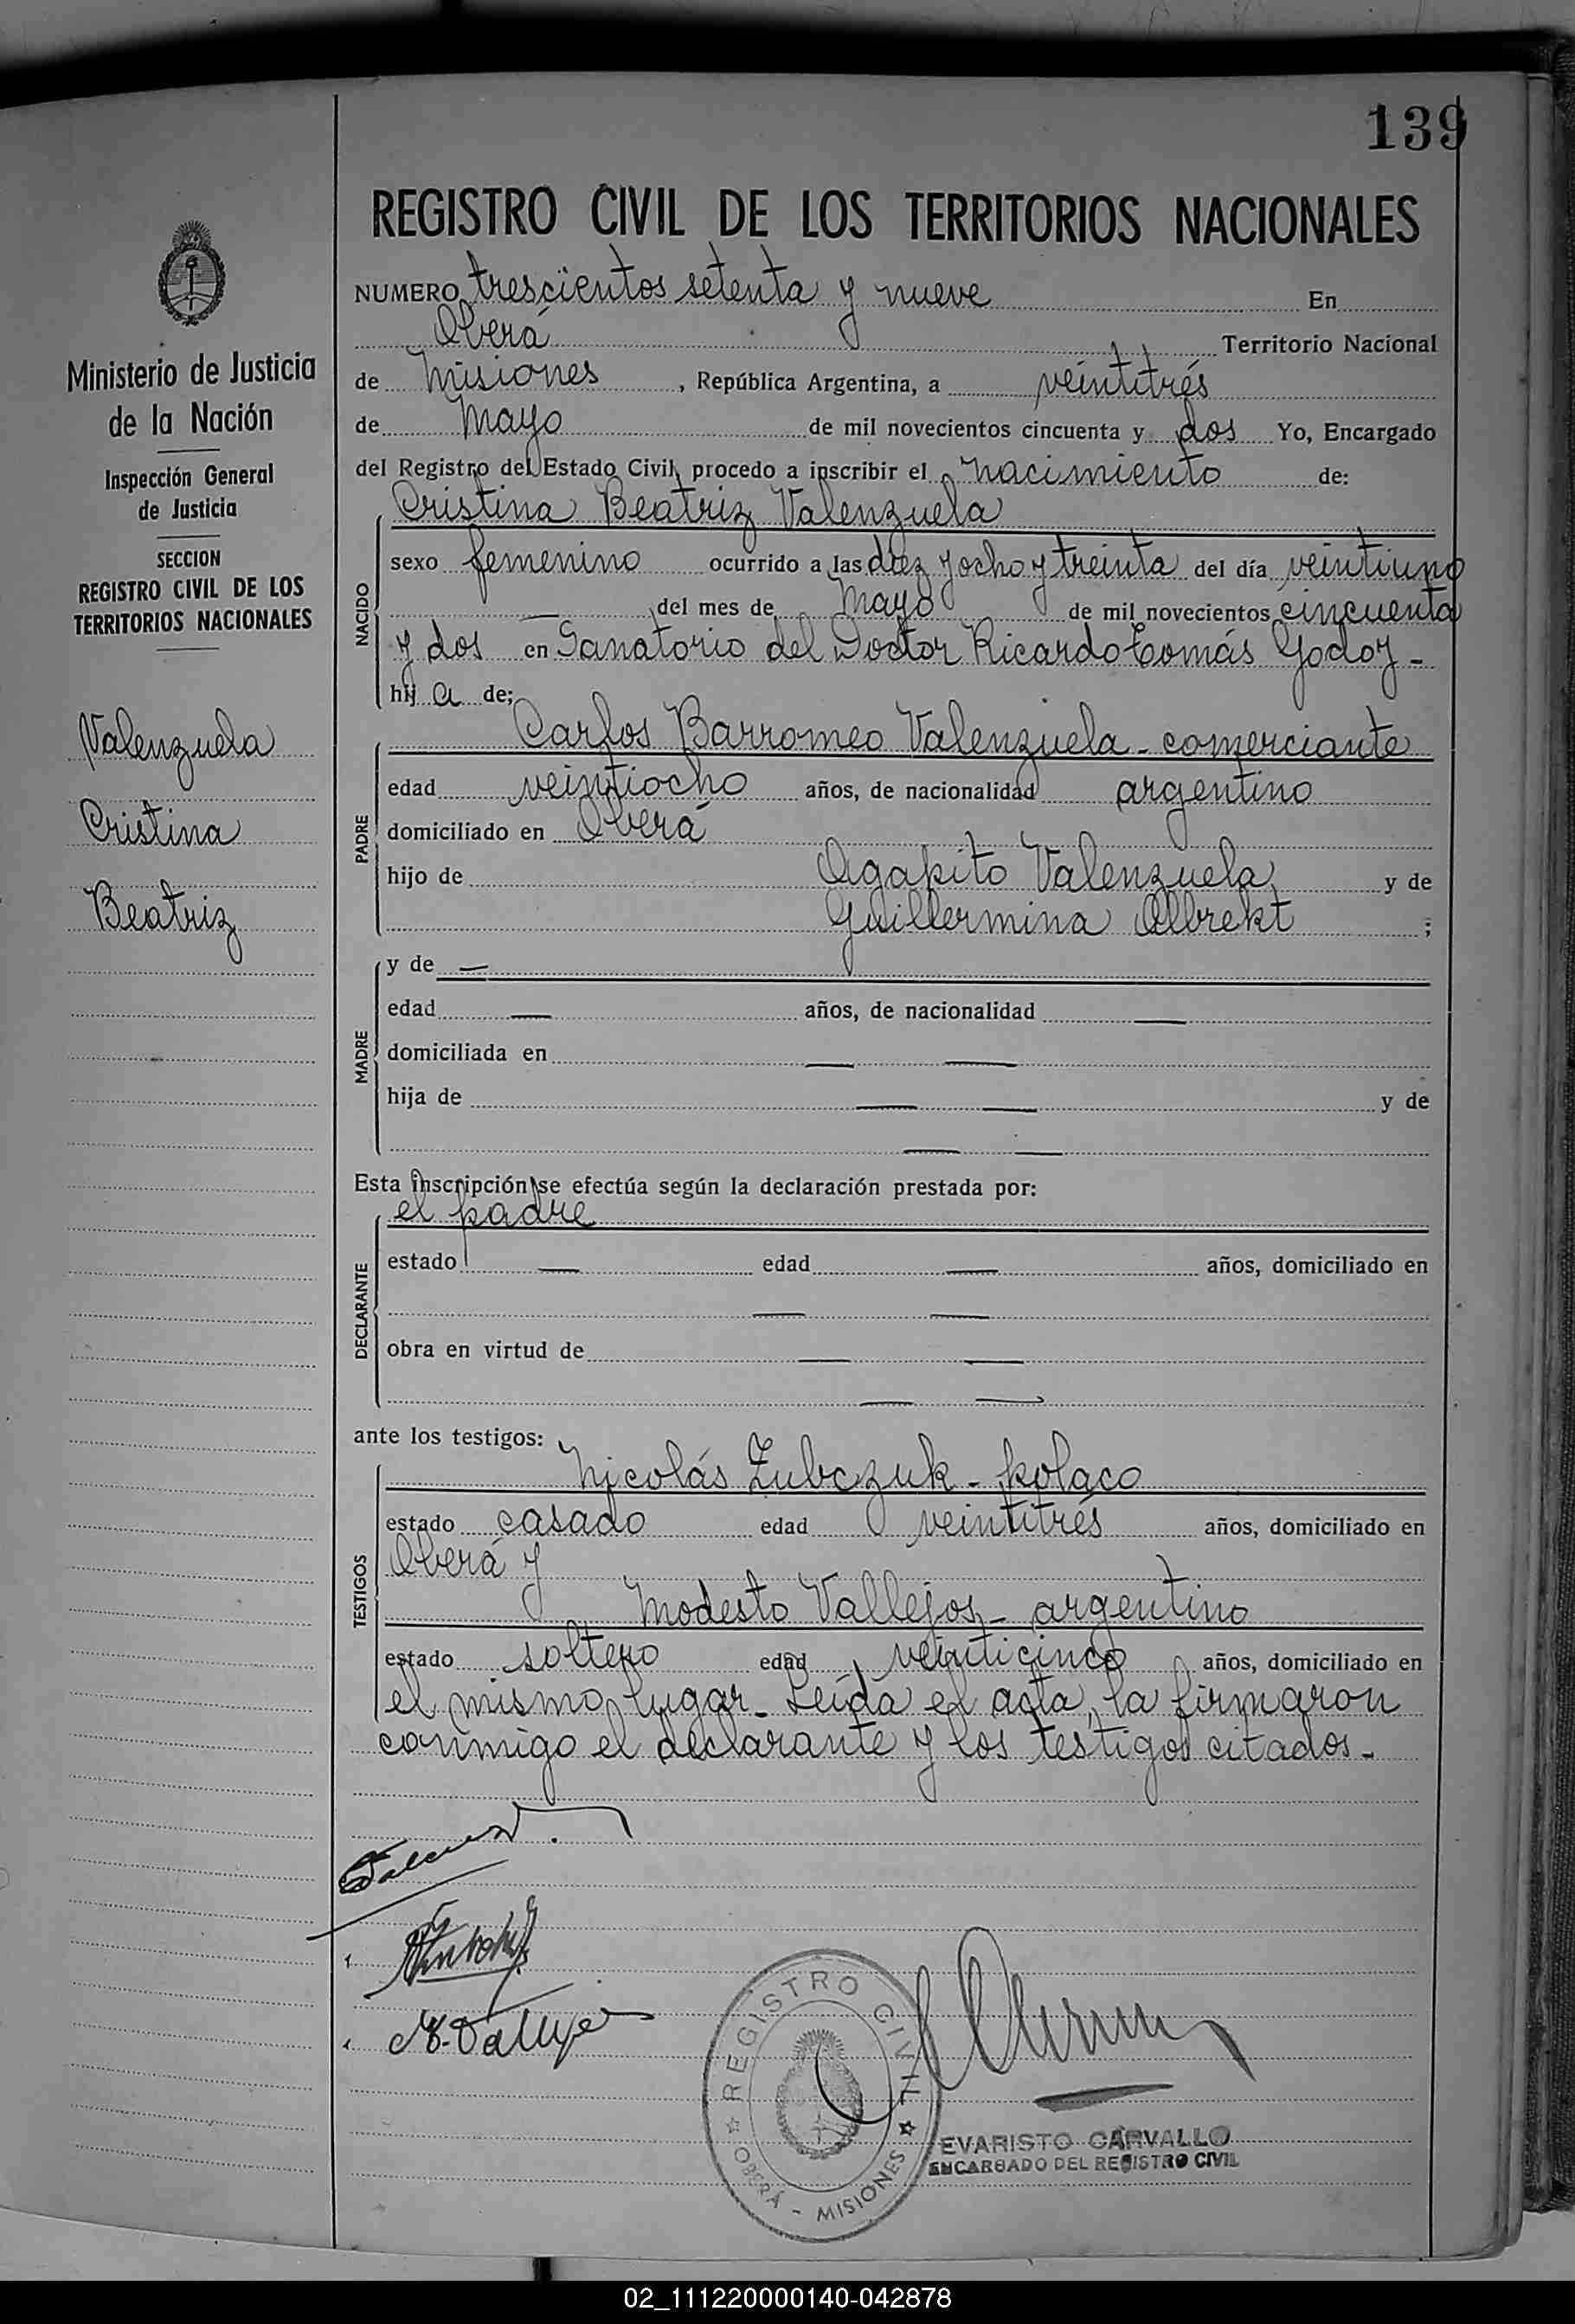 139
REGISTRO CIVIL DE LOS TERRITORIOS NACIONALES
Ministerio de Justicia
de la Nación
Inspección General
de Justicia
SECCION
REGISTRO CIVIL DE LOS
TERRITORIOS NACIONALES
Valenzuela
Cristina
Beatriz
NUMERO trescientos setenta y nueve En
Oberá Territorio Nacional
de Misiones, República Argentina, a veintitrés
de Mayo de mil novecientos cincuenta y dos Yo, Encargado
del Registro del Estado Civil, procedo a inscribir el nacimiento de:
NACIDO
Cristina Beatriz Valenzuela
sexo femenino ocurrido a las diez y ocho y treinta del día veintiuno
— del mes de Mayo de mil novecientos cincuenta
y dos en Sanatorio del Doctor Ricardo Tomás Godoy -
hij a de;
PADRE
Carlos Barromeo Valenzuela - comerciante
edad veintiocho años, de nacionalidad argentino
domiciliado en Oberá
hijo de Agapito Valenzuela y de
Guillermina Albrekt ;
MADRE
y de —
edad — años, de nacionalidad —
domiciliada en — —
hija de — — y de
— —
Esta inscripción se efectúa según la declaración prestada por:
DECLARANTE
el padre
estado — edad — años, domiciliado en
— —
obra en virtud de — —
— —
ante los testigos:
TESTIGOS
Nicolás Zubczuk - polaco
estado casado edad veintitrés años, domiciliado en
Oberá y
Modesto Vallejos - argentino
estado soltero edad veinticinco años, domiciliado en
el mismo lugar - Leída el acta, la firmaron
conmigo el declarante y los testigos citados -
REGISTRO CIVIL
OBERÁ - MISIONES
EVARISTO CARVALLO
ENCARGADO DEL REGISTRO CIVIL
02_111220000140-042878